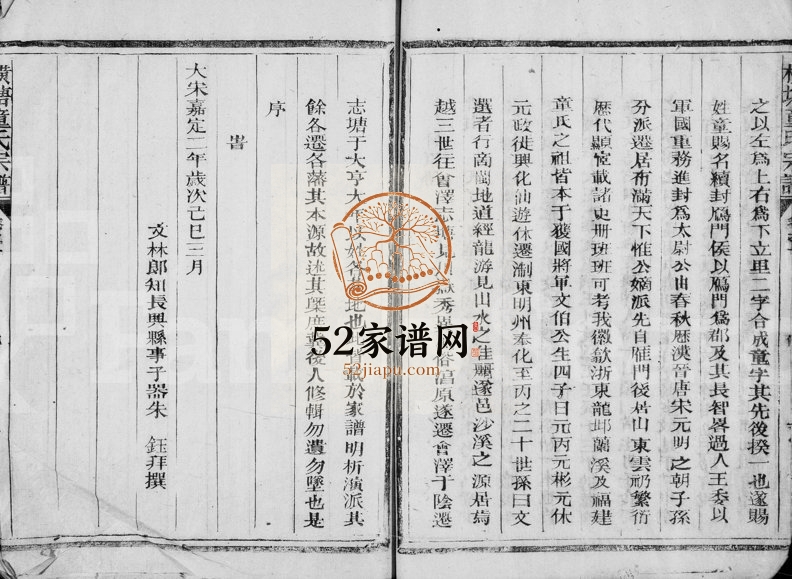 之以左爲上右爲下立里二字合成童字其先後揆一也遂賜
姓童賜名續封鴈門侯以鴈門爲郡及其長智畧過人王委以
軍國重務進封爲太尉公由春秋歷漢晉唐宋元明之朝子孫
分派遷居布滿天下惟公嫡派先自雁門後居山東雲礽繁衍
歷代顯宦載諸史册班班可考我徽歙浙東龍邱蘭溪及福建
童氏之祖皆本于獲國將軍文伯公生四子曰元丙元彬元休
元政徙興化仙遊休遷淛東明州奉化至丙之二十世孫曰文
選者行商閩地道經龍游見山水之佳麗遂邑沙溪之源居焉
越三世往會澤志
秀
昌原遂遷會澤于陰遷
志塘于大亨大
地也
於家譜明析演派其
餘各遷各藩其本源故述其槩庶
後人修輯勿遺勿墜也是
序
旹
大宋嘉定二年歲次己巳三月
文林郎知長興縣事子器朱 鈺拜撰
橫塘童氏宗譜
52家谱网
52jiapu.com